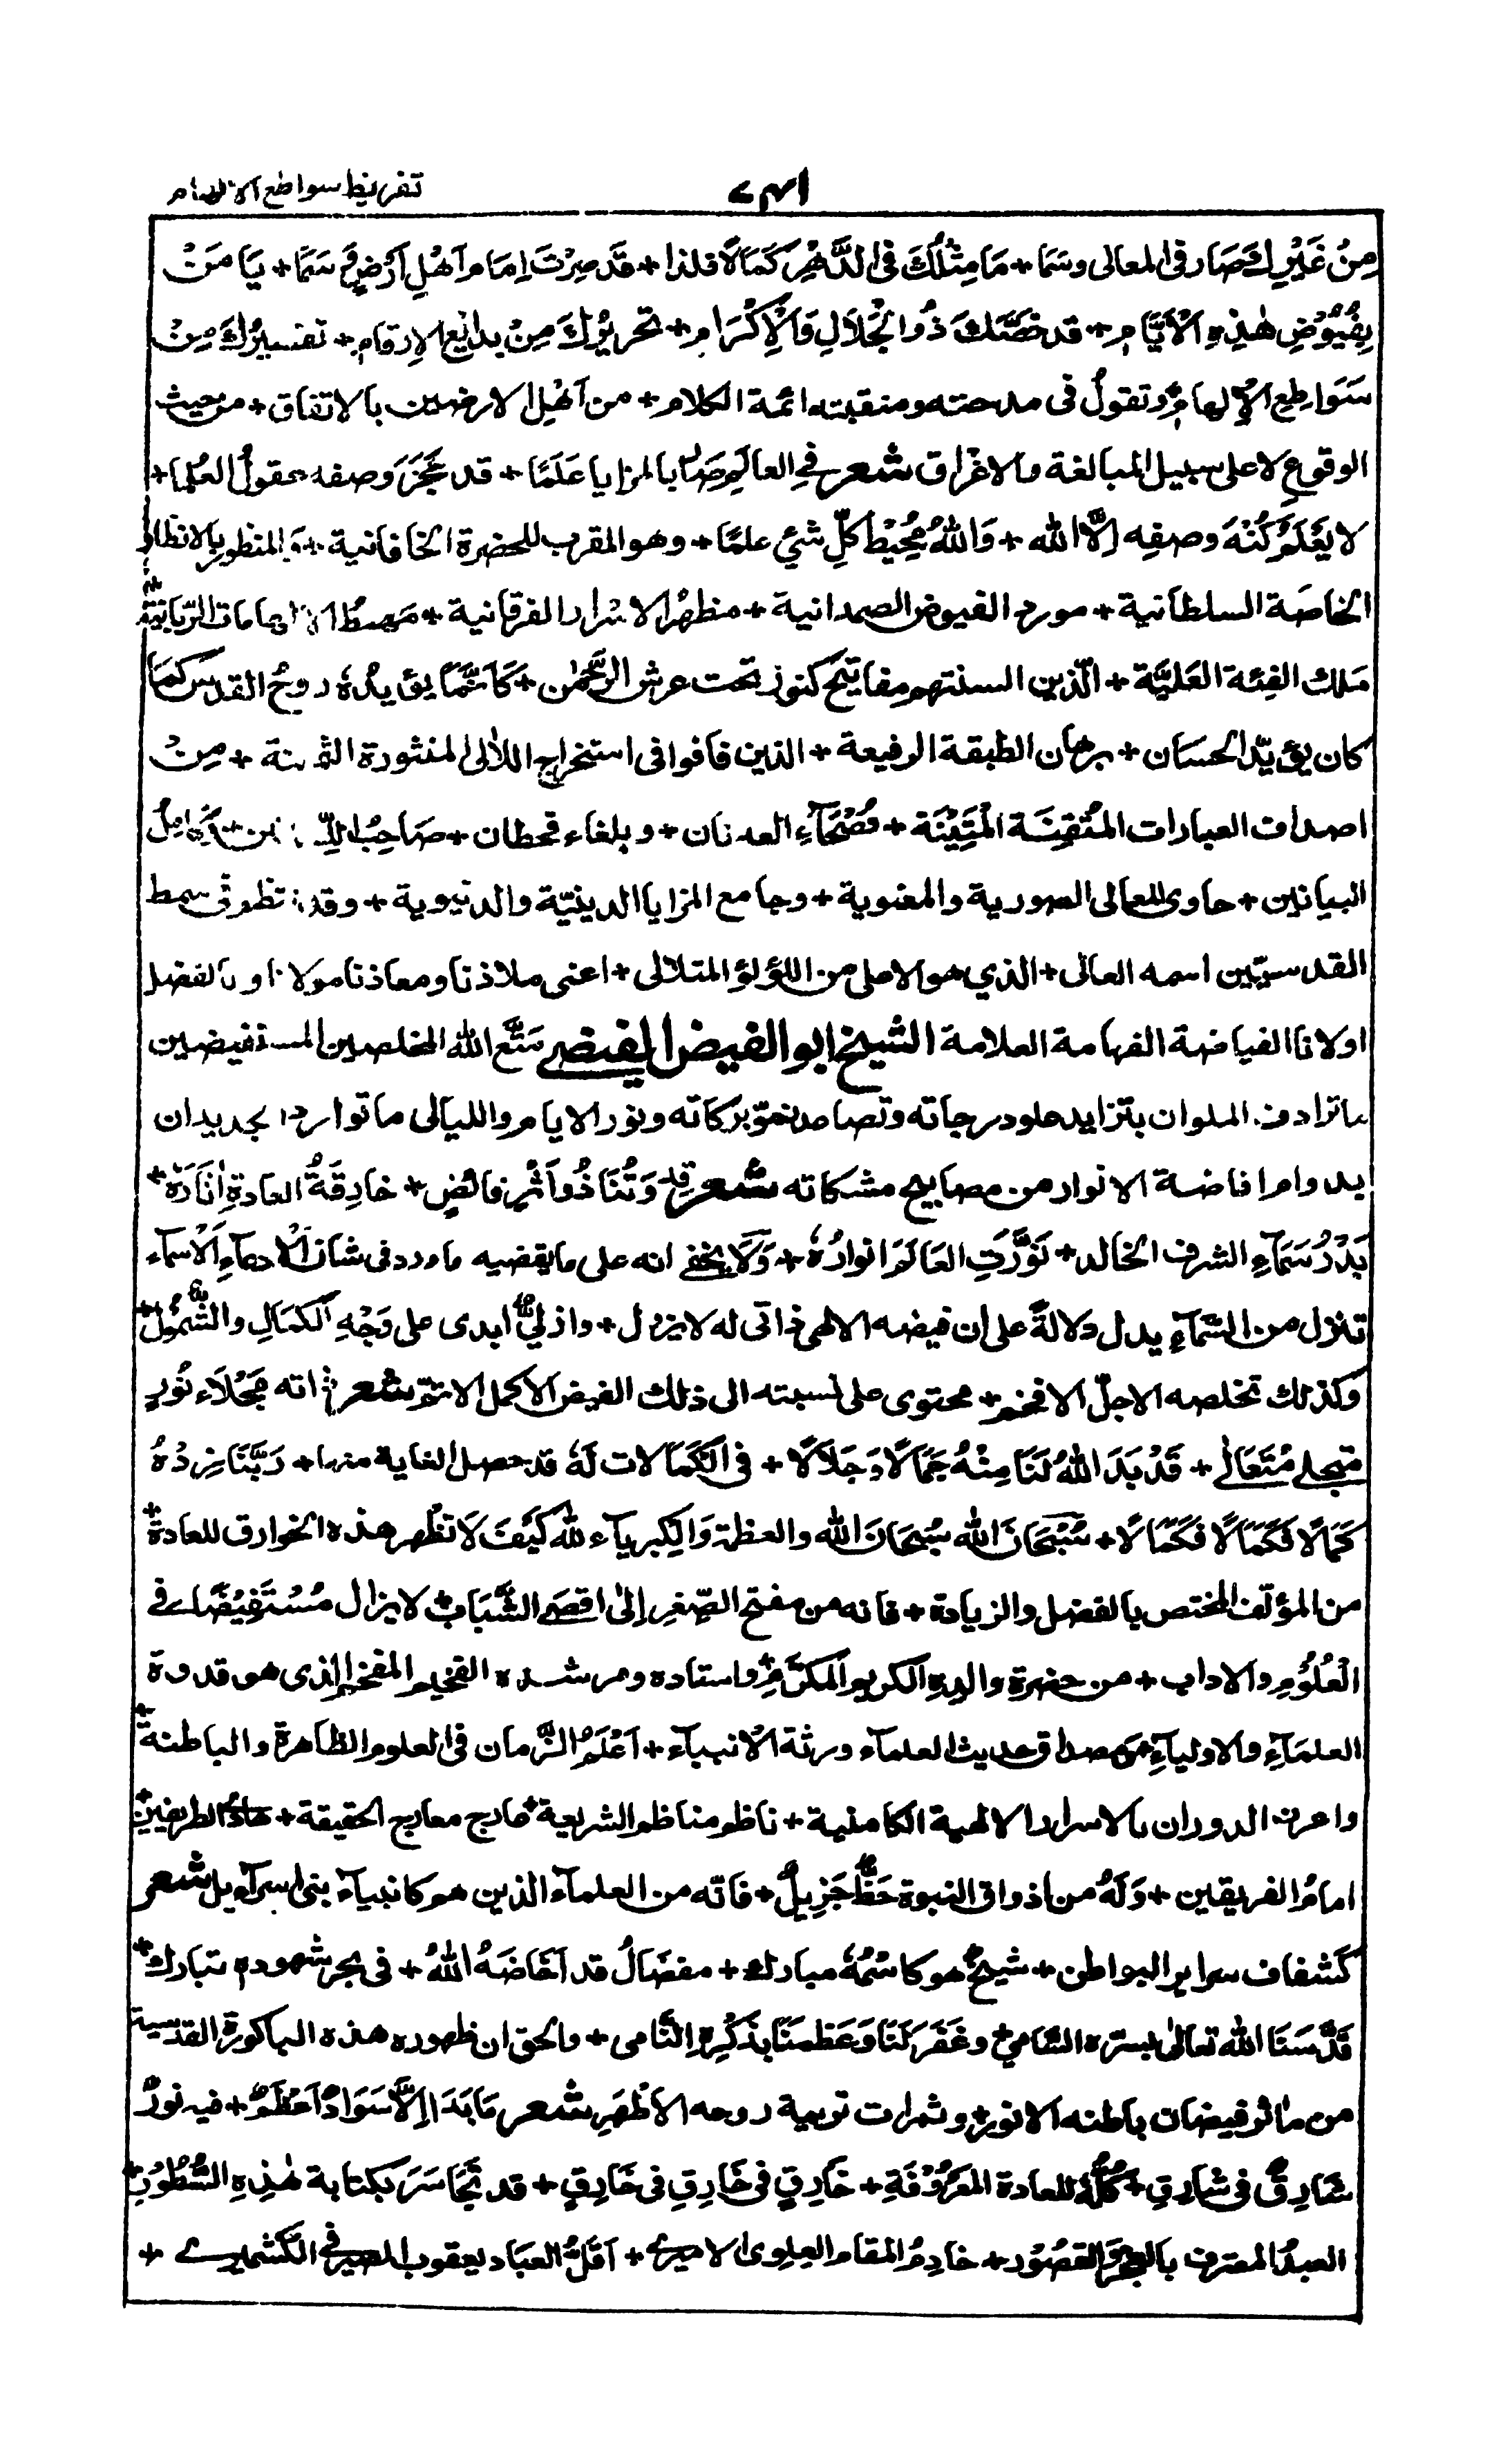 تقريظ سواطع الالهام
٧٤١
مِنْ غَيْرِكَ صَار فى المعالى وسَمَا + مَا مِثْلُكَ فى الدَّهْرِ كَمَالًا فلذا + قَد صِرْتَ اِمَام اَهْلِ اَرْضٍ وَّ سَمَا + يَا مَنْ
بِفُيُوْضِ هٰذِهِ الْاَيَّامِ + قد خصَّكَ ذُو الْجَلَالِ وَالْاِكْرَامِ + تحريرُكَ مِنْ بدائع الارقام + تفسيرُكَ مِنْ
سَوَاطِعِ الْاِلهامِ وتقولُ فى مدحته ومنقبته ائمة الكلام + من اَهْلِ الارضين بالاتفاق + من حيث
الوقوعِ لا على سبيل المبالغة والاغراق شعر فے العالَمِ صَارَ بالمزايا عَلَمًا + قد عَجَزَ وصفه عقولُ العُلما +
لا يَعْلَمُ كُنْهَ وصفِه اِلَّا الله + وَاللهُ مُحِيْط كلِّ شئ علمًا + وهو المقرب للحضرة الخاقانية + وَالمنظور بالانظار
الخاصَة السلطانية + مورد الفيوض الصمدانية + مظهرُ الاسْرار الفرقانية + مَهبطُ الالهامات الرّبانية +
مَلك الفِئة العَليَّة + الّذين السنتهم مفاتيح كنوز تحت عرش الرَّحمٰن + كَاَنَّمَا يؤيدُهٗ روحُ القدس كمَا
كان يؤيّد الحسَان + برهان الطبقة الرفيعة + الذين فاقوا فى استخراج اللاٰلى المنثورة الثمينة + مِنْ
اصداف العبارات المتْقِنَة الْمَتِيْنَة + فُصَحَآءِ العدنان + وبلغاء قحطان + صَاحِبُ
البيانين + حاوى للمعالى الصورية والمعنوية + وجامع المزايا الدينيّة والدنيوية + وقد انتظم فى سمط
القدسيّين اسمه العالى + الذي هو الاصلى من اللؤلؤ المتلالى + اعنى ملاذنا ومعاذنا مولانا وبالفضل
اولانا الفياضة الفهامة العلامة الشيخ ابو الفيض الفيضے مَتَّع الله المخلصين المستفيضين
ما ترادف الملوان بتزايد علو درجاته وتصاعد نموّ بركاته ونور الايام والليالى ما توارد الجديدان
بدوام افاضة الانوار من مصابيح مشكاته شعر فائض + خارِقَةُ العادةِ اٰثارُهٗ +
بَدْرُ سَمَآءِ الشرف الخالد + نَوَّرَتِ العَالَمَ انوارُهٗ + وَلَا يخفے انه على ما يقضيه ما ورد فى شان الاسمآءِ الْاسمآء
تنزل من السّمآءِ يدل دلالةً على ان فيضه الالٰهى ذاتى له لا يزول + وازليٌّ ابدى على وَجْهِ الْكَمَالِ والشُّمُوْلِ +
وكذلك تخلصه الاجلّ الافخم + محتوى على نسبته الى ذلك الفيض الاكمل الاتمّ شعر ذاته مَجْلَاء نُورِ
مَتجلے مُتَعَالٰے + قَدْ بَدَ اللهُ لَنَا مِنْهُ جَمَالًا وَجَلَالًا + فى الْكَمَالات لَهٗ قد حصل الغاية منها + رَبَّنَا زِدْهُ
كَمَالًا فَكَمَالًا فَكَمَالًا + سُبْحَانَ الله سُبْحَانَ الله والعظمة وَالكبرياء لله كَيْفَ لَا تظهر هذه الخوارق للعادة +
من المؤلّف المختص بالفضل والزيادة + فانه من مفتح الصّغر اِلىٰ اقصے الشَّبَاب + لا يزال مُسْتَفِيْضًا فے
الْعُلُوْمِ والاداب + من حضرة والدهِ الكريم المكَرَّمِ + واستاده ومرشده الفخيم المفخم الذى هو قدوة
العلمَآءِ والاوليآءِ من مصداق حديث العلمآء ورثة الانبيآء + اَعْلَمُ الزَّمان فى العلوم الظاهرة والباطنة +
واعرف الدوران بالاسرار الالهية الكامنية + ناظم مناظم الشريعة + عارج معارج الحقيقة + الطريقين +
امامُ الفريقين + وَلَهُ من اذواق النبوة حَظٌّ جَزِيلٌ + فانّه من العلمآء الذين هو كانبيآء بنى اسرآءيل شعر
كَشّاف سراير البواطن + شيخٌ هو كاسْمُهٗ مبارك + مفضالٌ قد اَفَاضَهُ اللهُ + فى بحر شهوده تبارك +
قَدَّسَنَا الله تعالىٰ بسرّه السَّامى + وغَفَرَ لَنَا وَعَظمنَا بذِكْرِهِ النَّامى + والحق ان ظهوره هذه الباكورة القدسية
من ماٰثر فيضان باطنه الانور + وثمرات تربية روحه الاظْهَرِ شعر مَا بَدَا اِلَّا سَوَادٌ اَعْظَمُ + فيه نورٌ
شَارِقٌ فى شارِقِ + كُلُّهٗ للعادة المَعْرُوْفَةِ + خَارِقٍ فى خَارِقِ فى خَارِقٍ + قد تَجَاسَرَ بكتابة هٰذِهِ السُّطُوْرِ +
العبدُ المعترف بالعجز والقصُوْر + خادِمُ المقام العِلوى الاميرے + اَقَلُّ العبَاد يعقوب الصيرفے الكشميرے +